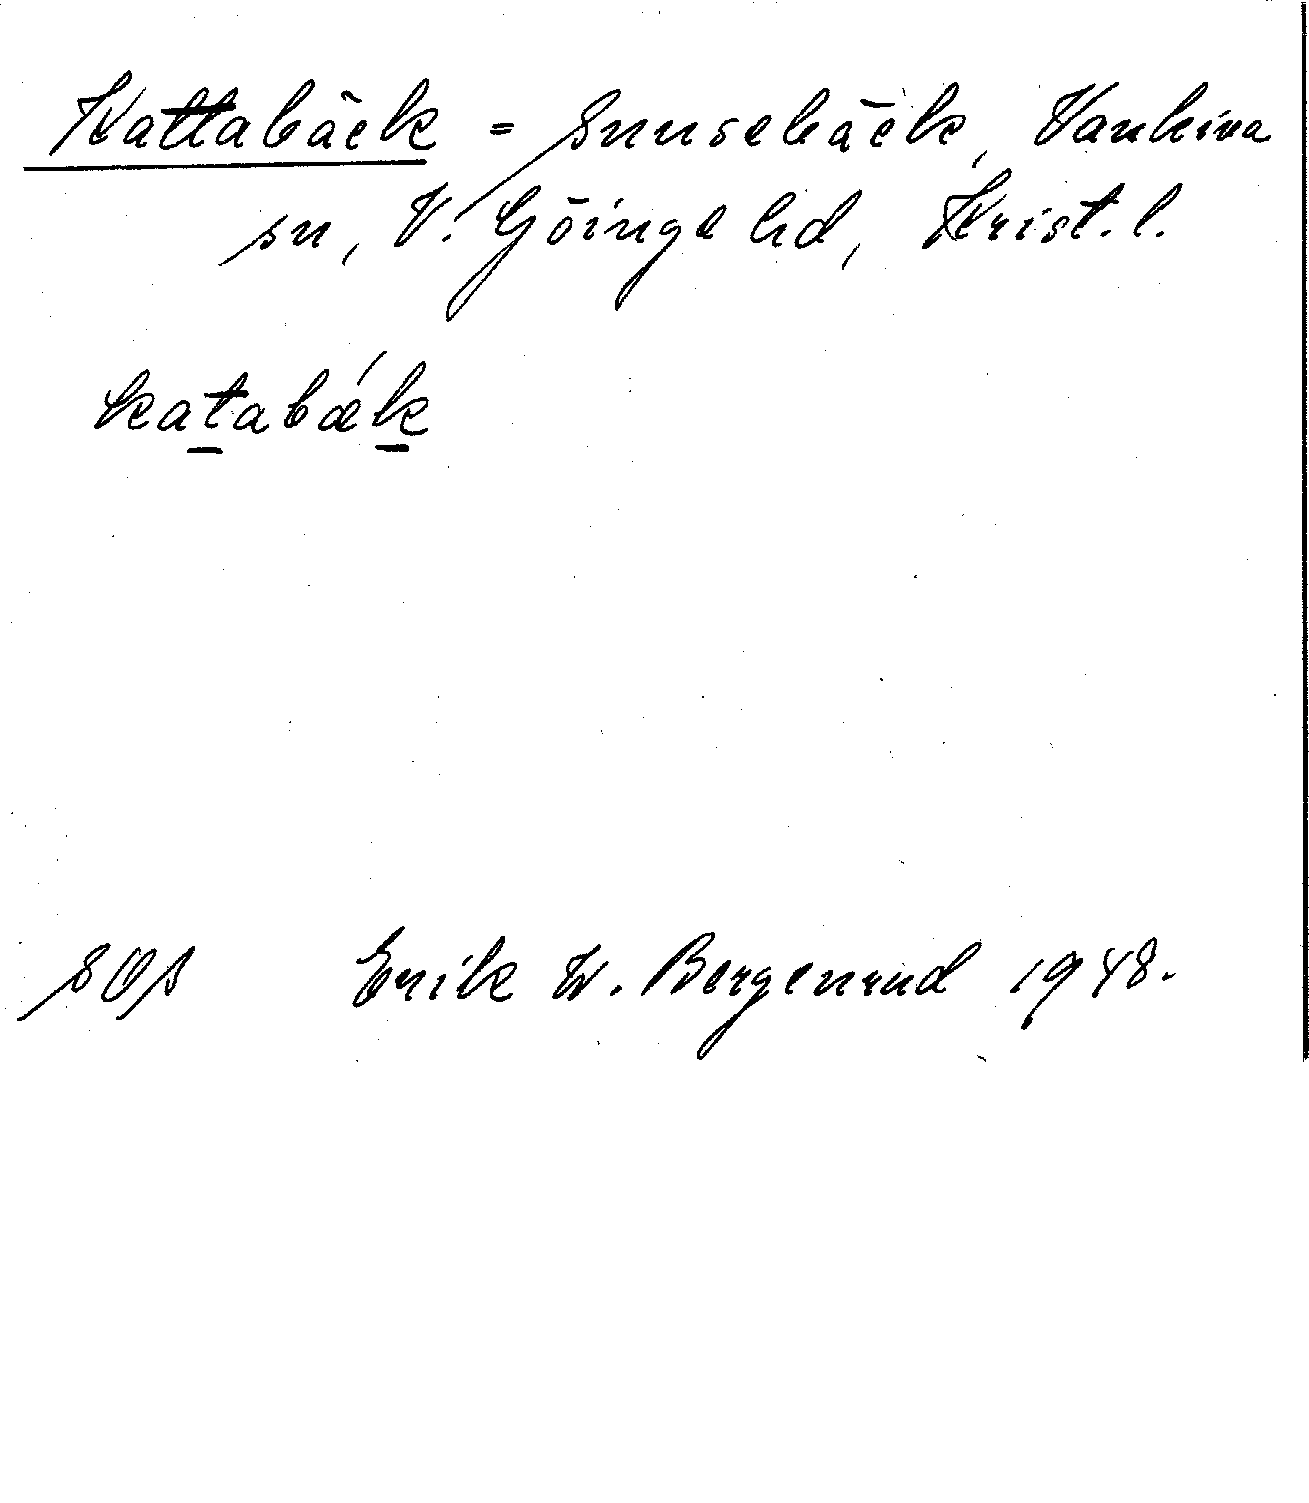 Kattabäck = Snusebäck, Vankiva
sn, V. Göinge hd, Krist. l.
katabǽk
SOA Erik W. Bergenrud 1948.